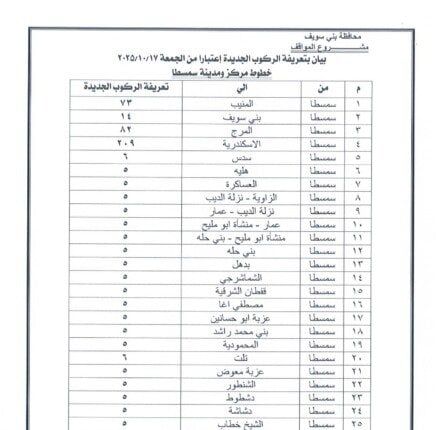 محافظة بني سويف
مشروع المواقف
بيان بتعريفة الركوب الجديدة إعتبارا من الجمعة ٢٠٢٥/١٠/١٧
خطوط مركز ومدينة سمسطا
م من الي تعريفة الركوب الجديدة
١ سمسطا المنيب ٧٣
٢ سمسطا بني سويف ١٤
٣ سمسطا المرج ٨٢
٤ سمسطا الاسكندرية ٢٠٩
٥ سمسطا سدس ٦
٦ سمسطا هليه ٥
٧ سمسطا العساكرة ٥
٨ سمسطا الزاوية - نزلة الديب ٥
٩ سمسطا نزلة الديب - عمار ٥
١٠ سمسطا عمار - منشأة ابو مليح ٥
١١ سمسطا منشأة ابو مليح - بني حله ٥
١٢ سمسطا بني حله ٥
١٣ سمسطا بدهل ٥
١٤ سمسطا الشماشرجي ٥
١٥ سمسطا قفطان الشرقية ٥
١٦ سمسطا مصطفي اغا ٥
١٧ سمسطا عزبة ابو حسانين ٥
١٨ سمسطا بني محمد راشد ٥
١٩ سمسطا المحمودية ٥
٢٠ سمسطا تلت ٦
٢١ سمسطا عزبة معوض ٥
٢٢ سمسطا الشنطور ٥
٢٣ سمسطا دشطوط ٥
٢٤ سمسطا دشاشة ٥
٢٥ سمسطا الشيخ خطاب ٥